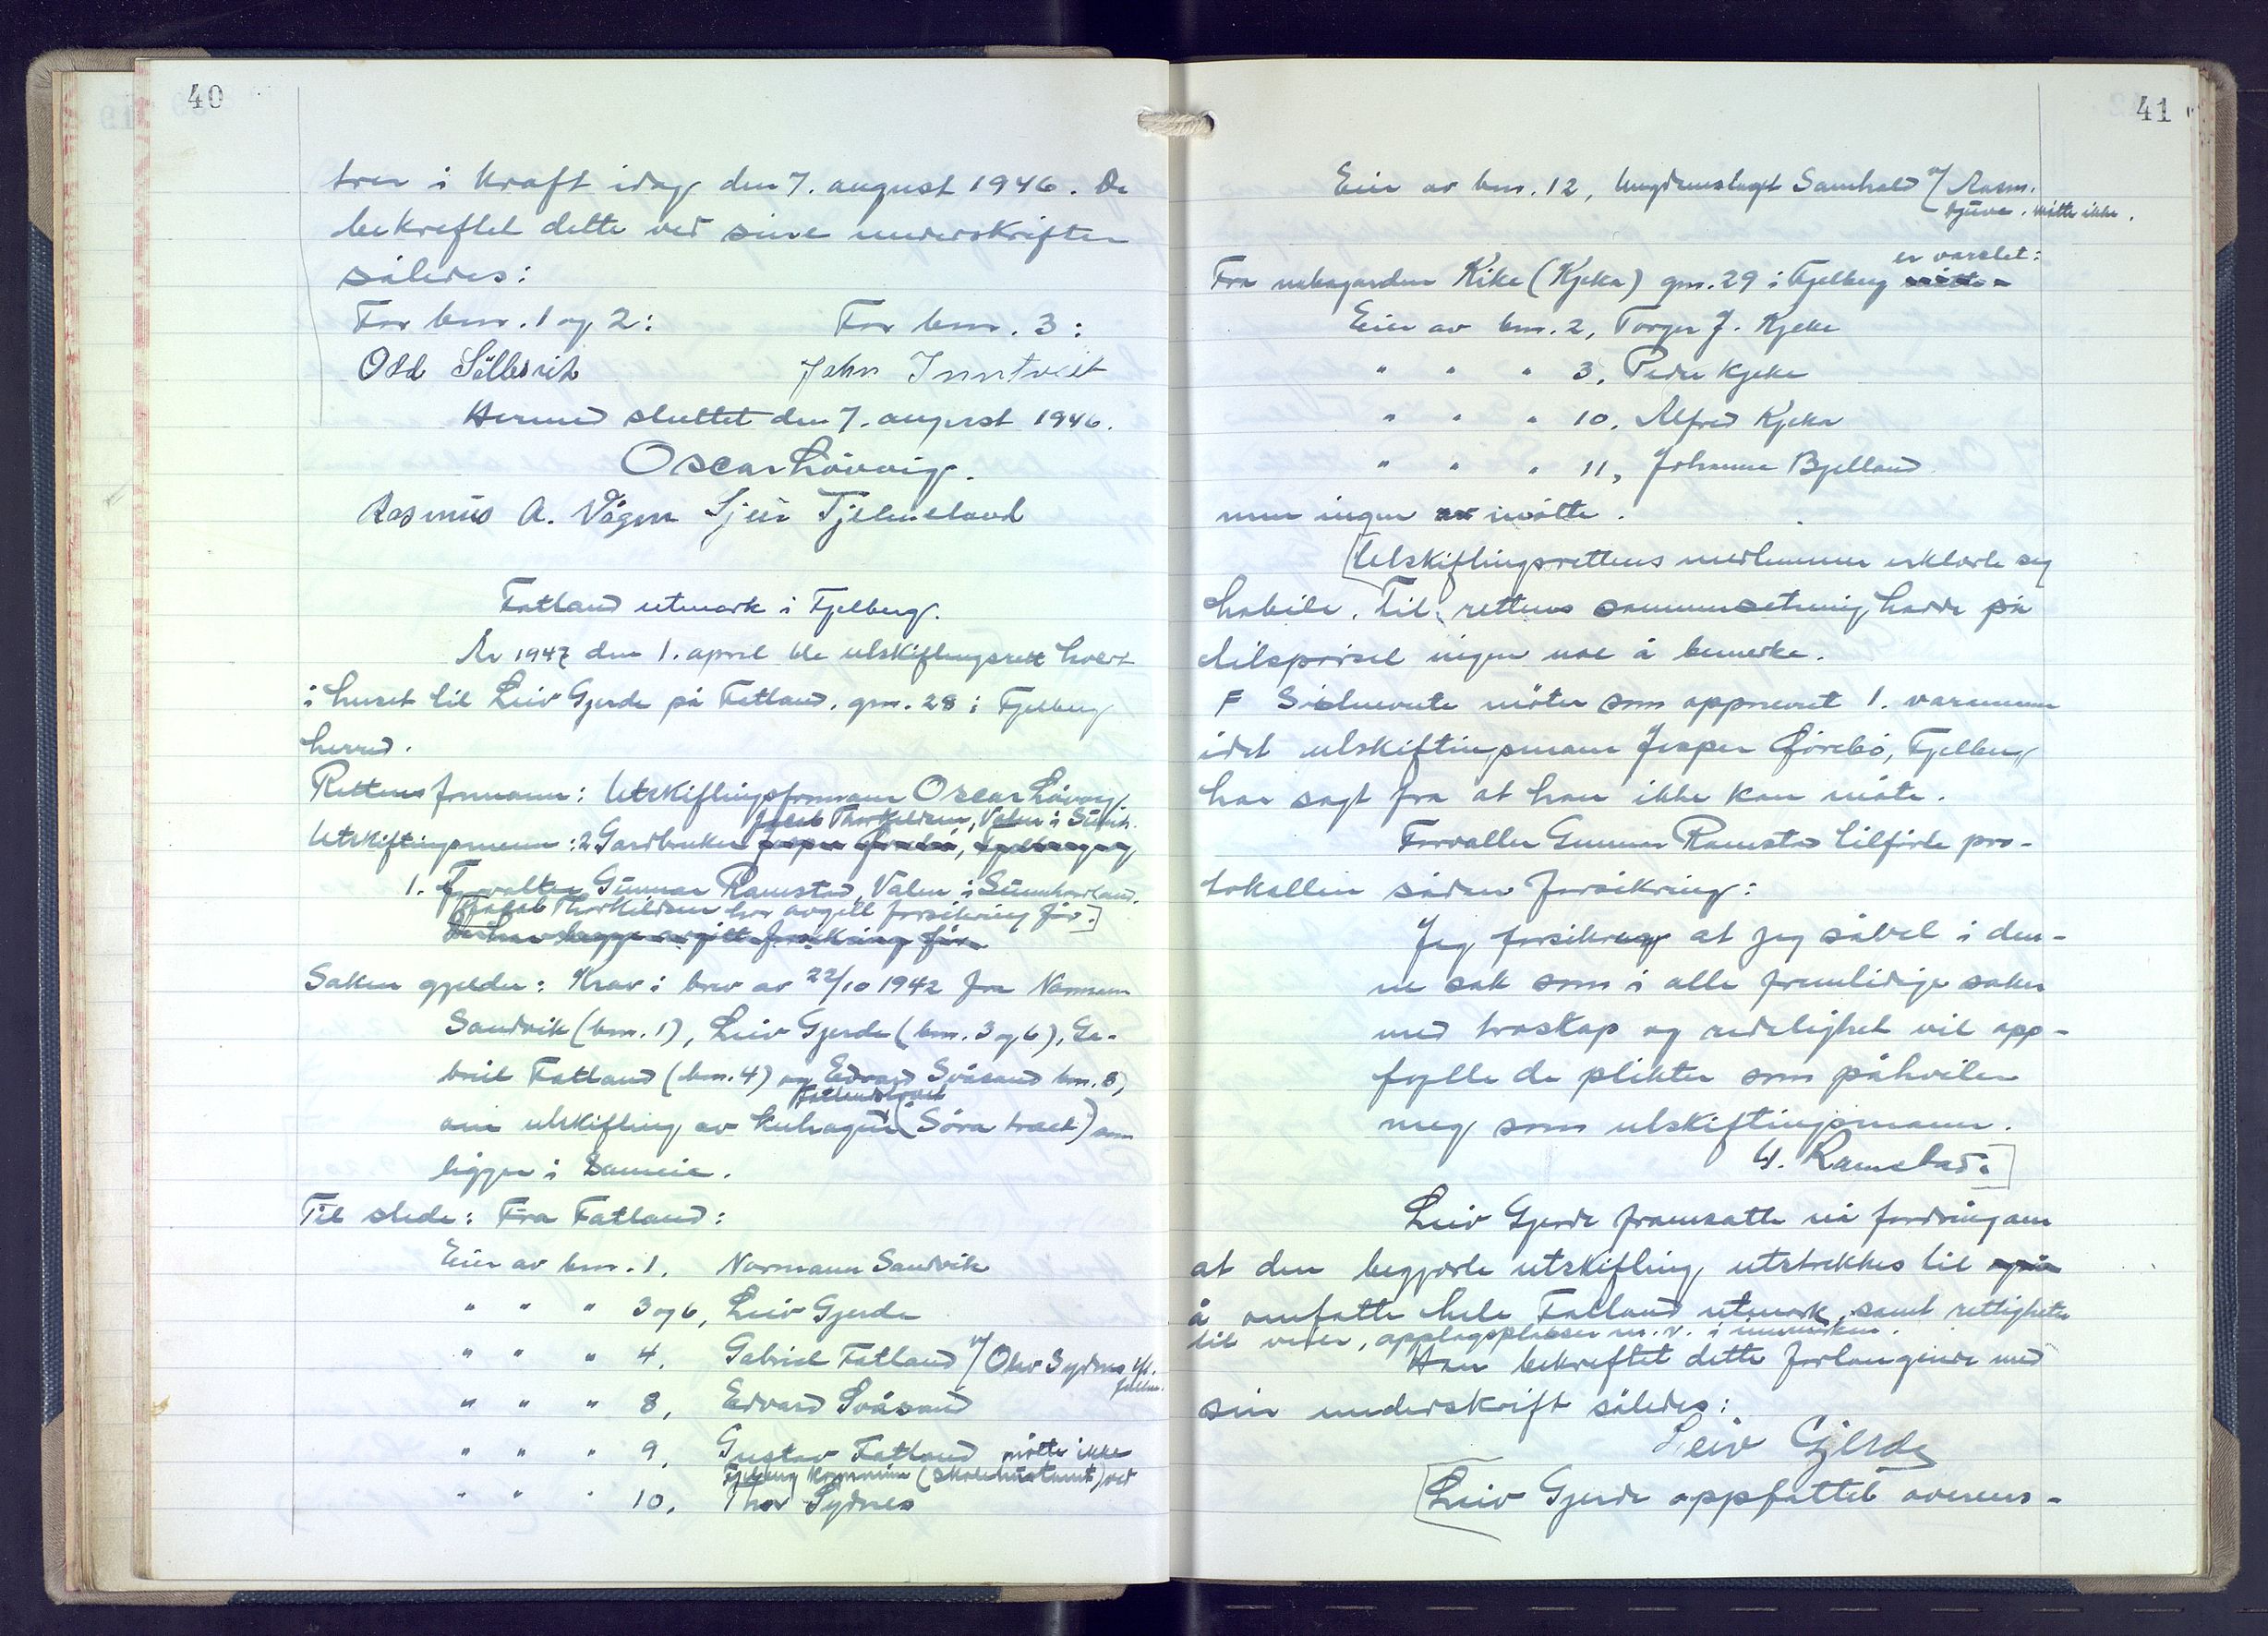 40
trer i kraft idag den 7. august 1946. De
bekreftet dette ved sine underskrifter
således:
For bnr. 1 og 2: For bnr. 3:
Odd John Inntveit
Hermed sluttet den 7. august 1946.
Oscar Lövvig.
Rasmus A. Vågen Sjur Tjelmeland
Fatland utmark i Fjelberg.
År 1947 den 1. april ble utskiftingsrett holdt
i huset til Leiv Gjerde på Fatland, gnr. 28 i Fjelberg
herred.
Rettens formann: Utskiftingsformann Oscar Lövvig.
Jakob Thorkildsen, Valen i Sunnh.
Utskiftingsmenn: 2 Gardbruker
1. Forvalter Gunnar Ramstad, Valen i Sunnhordland.
[Jakob Thorkildsen har avgitt forsikring før.]
De har begge avgitt forsikring før.
Saken gjelder: Krav i brev av 22/10 1942 fra Normann
Sandvik (bnr. 1), Leiv Gjerde (bnr. 3 og 6), Ga-
briel Fatland (bnr. 4) og Edvard Svåsand bnr. 8,
om utskifting av kuhagen (Söra traet) som
ligger i sameie.
Til stede: Fra Fatland:
Eier av bnr. 1, Normann Sandvik
" " " 3 og 6, Leiv Gjerde
" " " 4, Gabriel Fatland v/ Olav Sydnes
" " " 8, Edvard Svåsand
" " " 9, Gustav Fatland møtte ikke
Fjelberg kommune (skolehustomt) ved
" " " 10, Thor Sydnes
41
Eier av bnr. 12, Ungdomslaget Samhald v/ Rasm.
Djuve. møtte ikke.
er varslet:
Fra nabogarden Kike (Kjeka) gnr. 29 i Fjelberg møtte
Eier av bnr. 2, Torger J. Kjeke
" " " 3, Peder Kjeke
" " " 10, Alfred Kjeka
" " " 11, Johanna Bjelland
men ingen av møtte.
[Utskiftingsrettens medlemmer erklærte seg
habile. Til rettens sammensetning hadde på
tilspørsel ingen noe å bemerke.
møter som oppnevnt 1. varamann
idet utskiftingsmann Jesper Sørebø, Fjelberg
har sagt fra at han ikke kan møte.
Forvalter Gunnar Ramstad tilførte pro-
tokollen sådan forsikring:
Jeg forsikrer at jeg såvel i den-
ne sak som i alle fremtidige saker
med troskap og redelighet vil opp-
fylle de plikter som påhviler
meg som utskiftingsmann.
G. Ramstad.]
Leiv Gjerde framsatte nå fordring om
at den begjærte utskifting utstrekkes til også
å omfatte hele Fatland utmark, samt rettigheter
til veier, opplagsplasser m.v. i innmarken.
Han bekreftet dette forlangende med
sin underskrift således:
Leiv Gjerde
[Leiv Gjerde oppfattet overens-